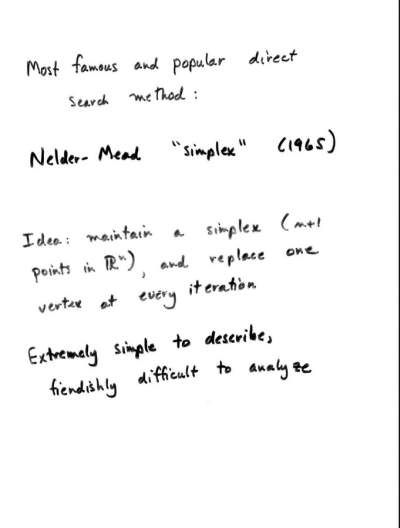 Most famous and popular direct
search method:
Nelder-Mead "simplex" (1965)
Idea: maintain a simplex (n+1
points in ℝⁿ), and replace one
vertex at every iteration
Extremely simple to describe,
fiendishly difficult to analyze